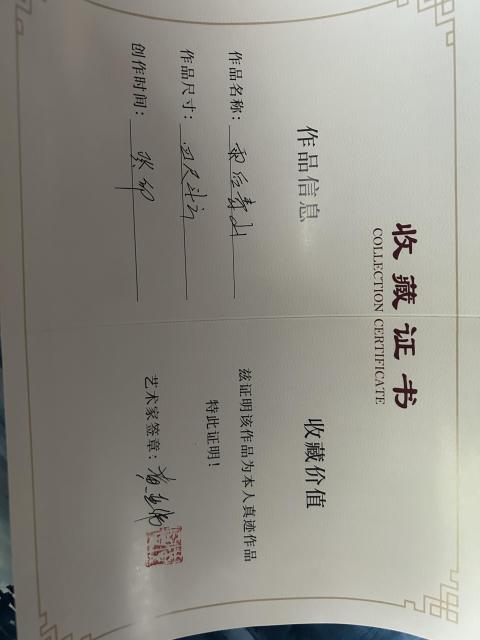 收藏证书
COLLECTION CERTIFICATE
作品信息
作品名称：雨后春山
作品尺寸：四尺斗方
创作时间：
收藏价值
兹证明该作品为本人真迹作品
特此证明！
艺术家签章：